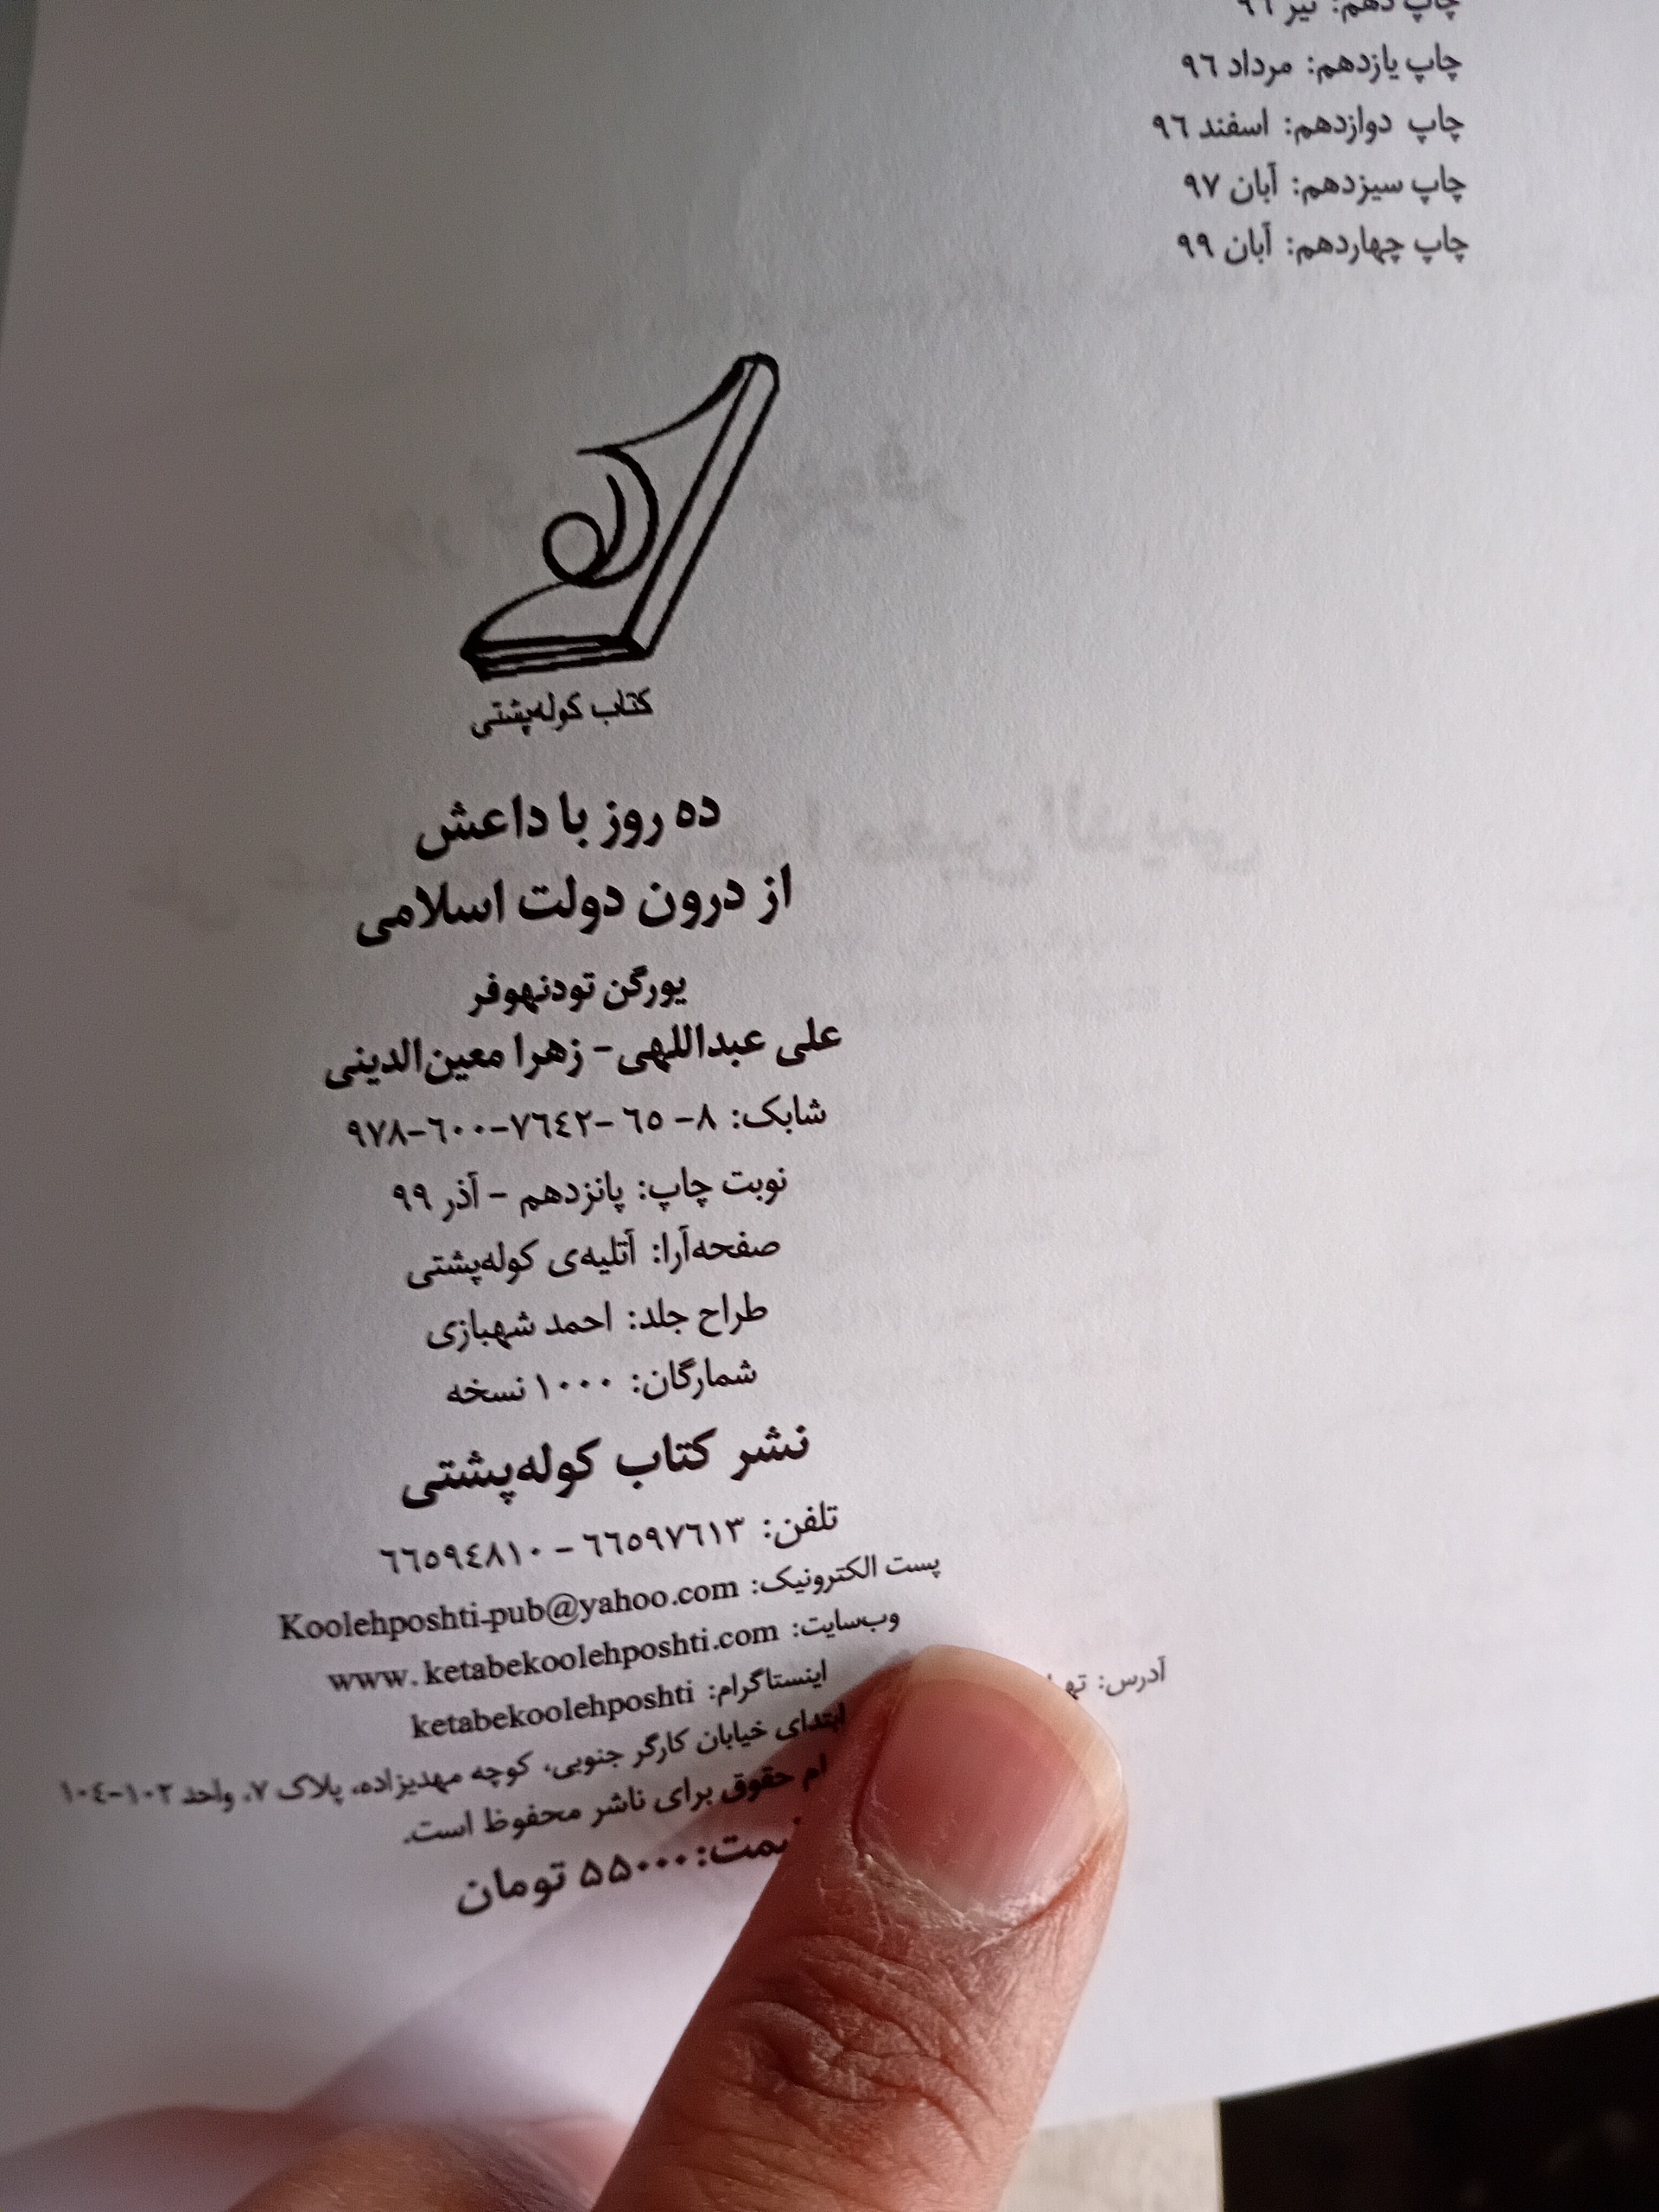 چاپ دهم: تیر ٩٦
چاپ یازدهم: مرداد ٩٦
چاپ دوازدهم: اسفند ٩٦
چاپ سیزدهم: آبان ٩٧
چاپ چهاردهم: آبان ٩٩
کتاب کوله‌پشتی
ده روز با داعش
از درون دولت اسلامی
یورگن تودنهوفر
علی عبداللهی- زهرا معین‌الدینی
شابک: ٨- ٦٥ -٧٦٤٢-٦٠٠-٩٧٨
نوبت چاپ: پانزدهم - آذر ٩٩
صفحه‌آرا: آتلیه‌ی کوله‌پشتی
طراح جلد: احمد شهبازی
شمارگان: ١٠٠٠ نسخه
نشر کتاب کوله‌پشتی
تلفن: ٦٦٥٩٧٦١٣ - ٦٦٥٩٤٨١٠
پست الکترونیک: Koolehposhti-pub@yahoo.com
وب‌سایت: www.ketabekoolehposhti.com
اینستاگرام: ketabekoolehposhti
آدرس: ابتدای خیابان کارگر جنوبی، کوچه مهدیزاده، پلاک ٧، واحد ١٠٢-١٠٤
حقوق برای ناشر محفوظ است.
۵۵۰۰۰ تومان